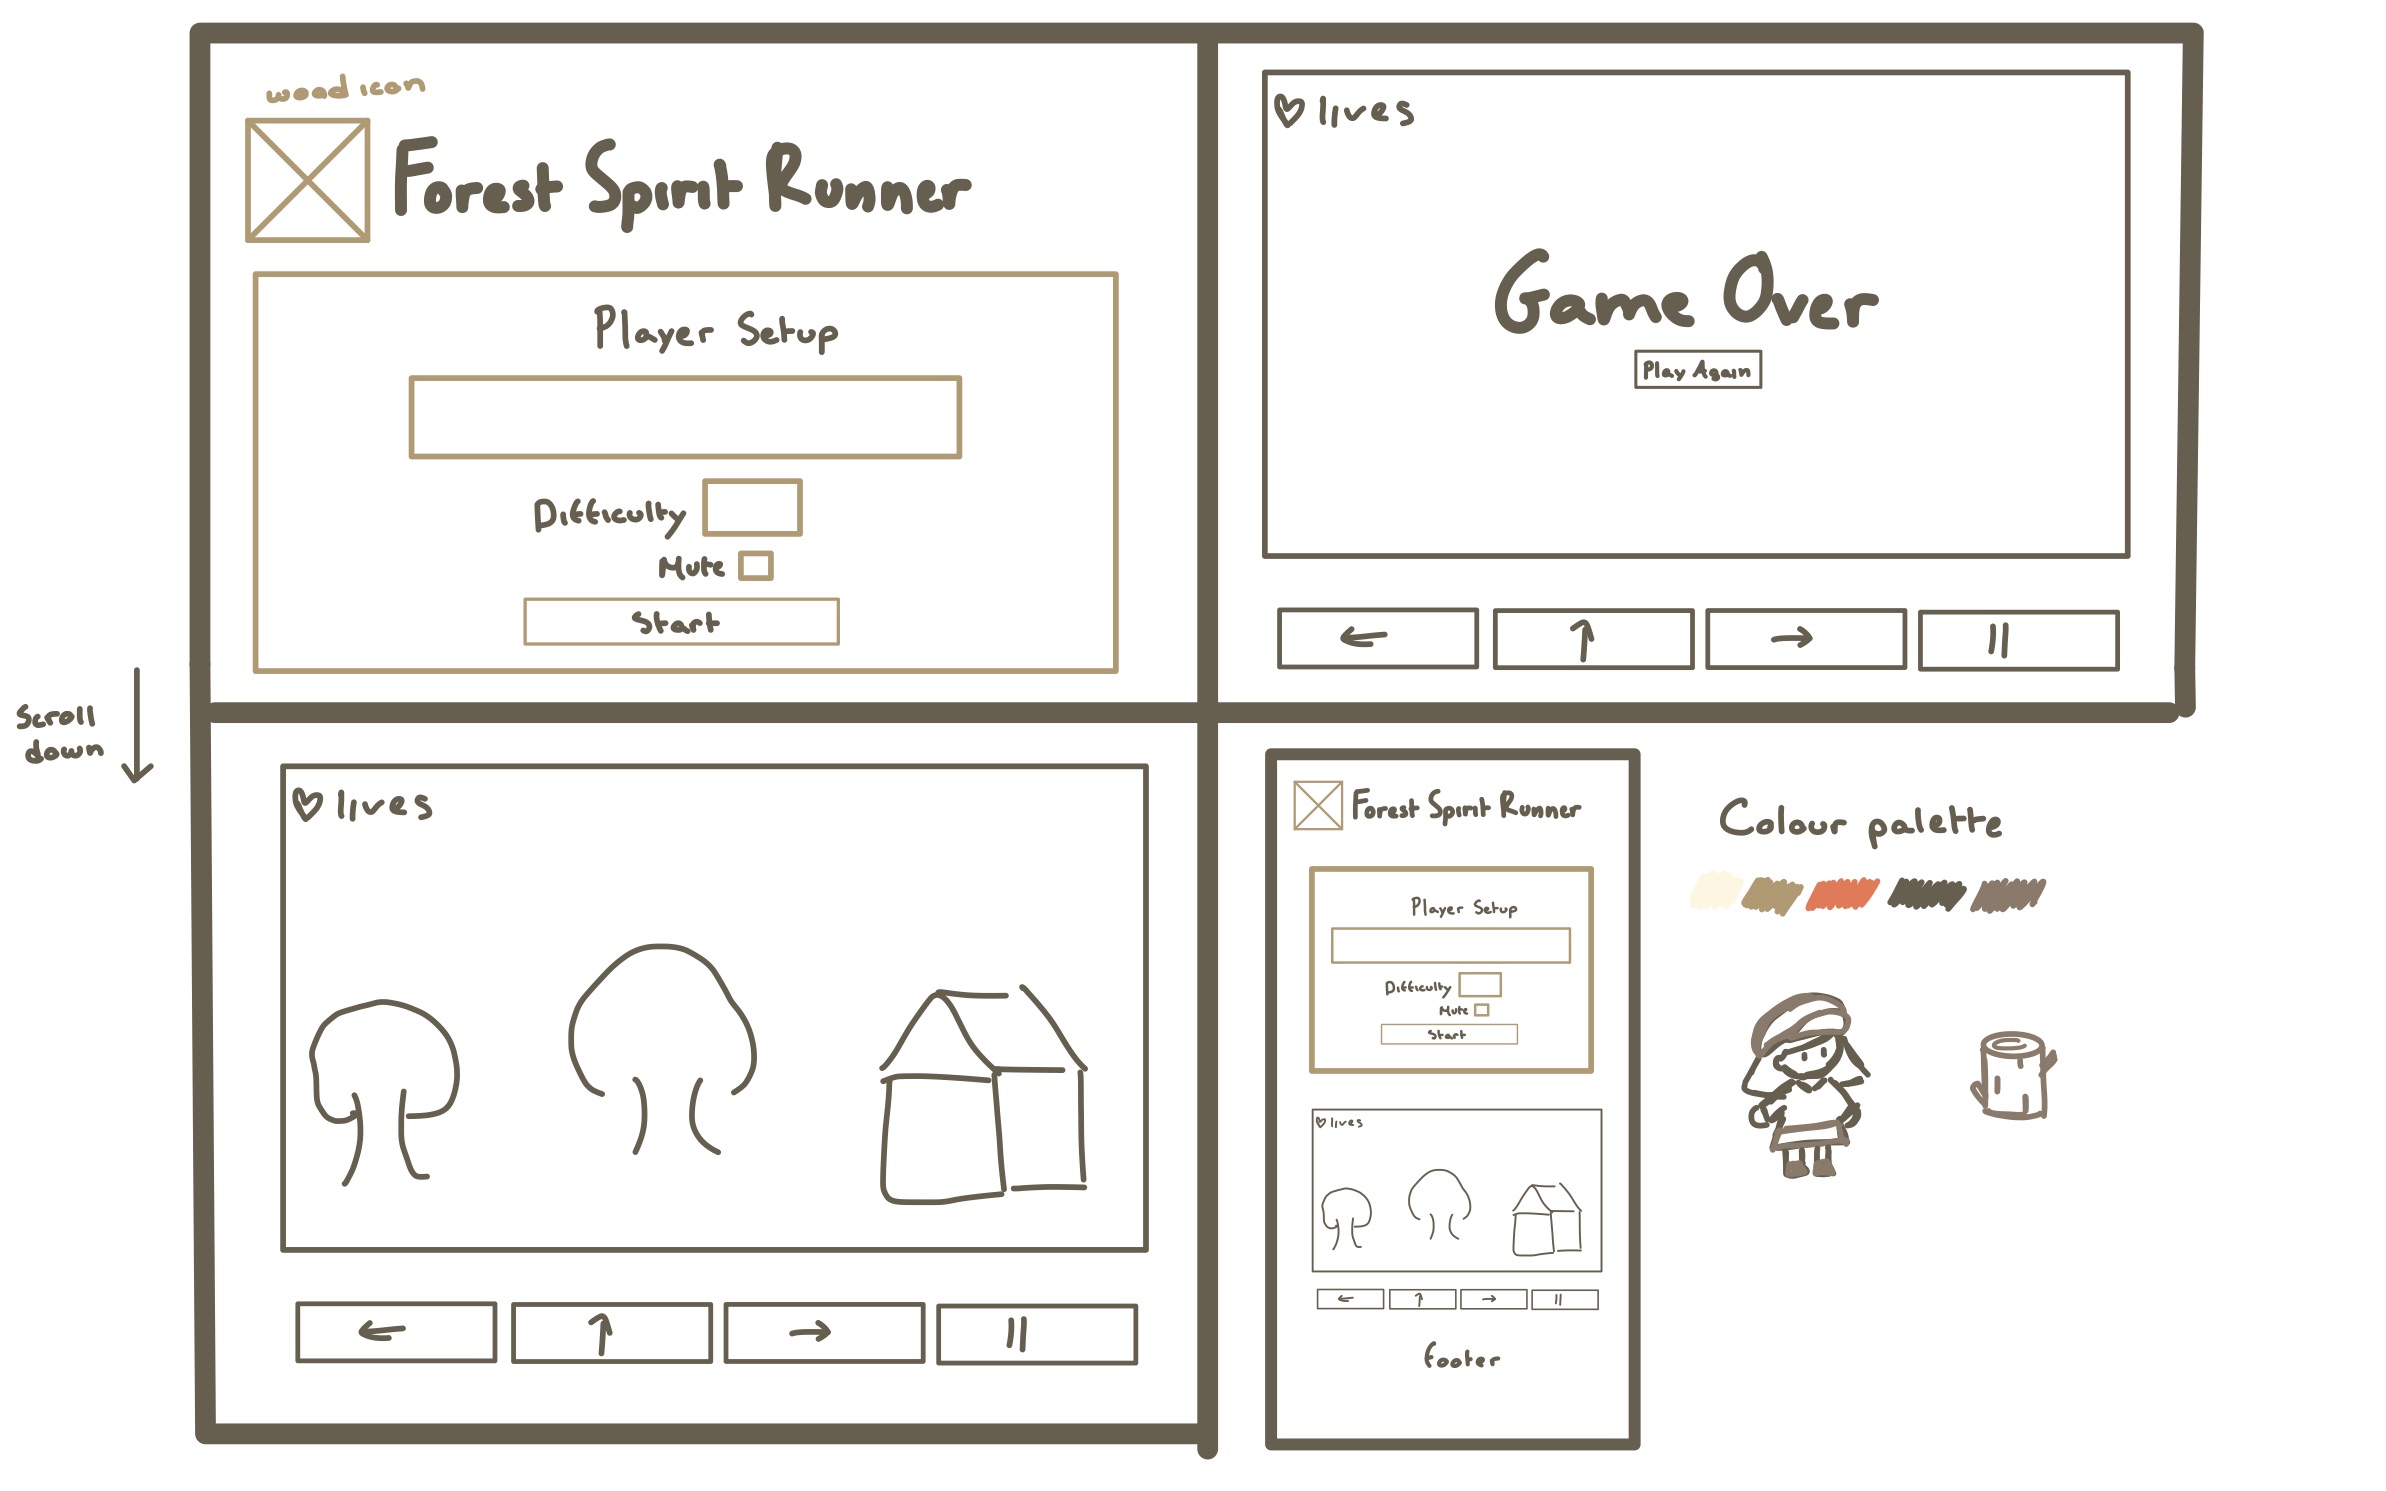 wood icon
Forest Spirit Runner
Player Setup
Difficulty
Mute
Start
lives
Game Over
Play Again
scroll
down
lives
Forest Spirit Runner
Player Setup
Difficulty
Mute
Start
lives
footer
Colour palette